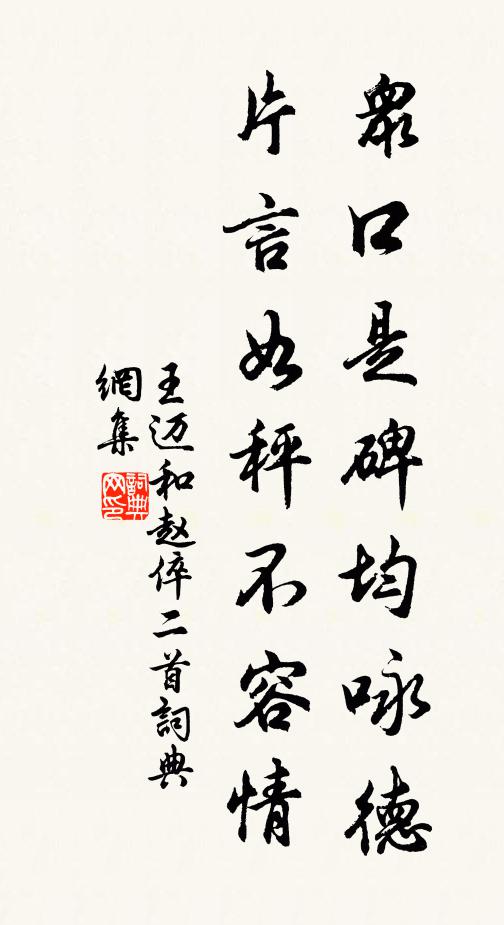 眾口是碑均咏德
片言如秤不容情
王迈和赵倅二首詞典
網集
詞典
网印